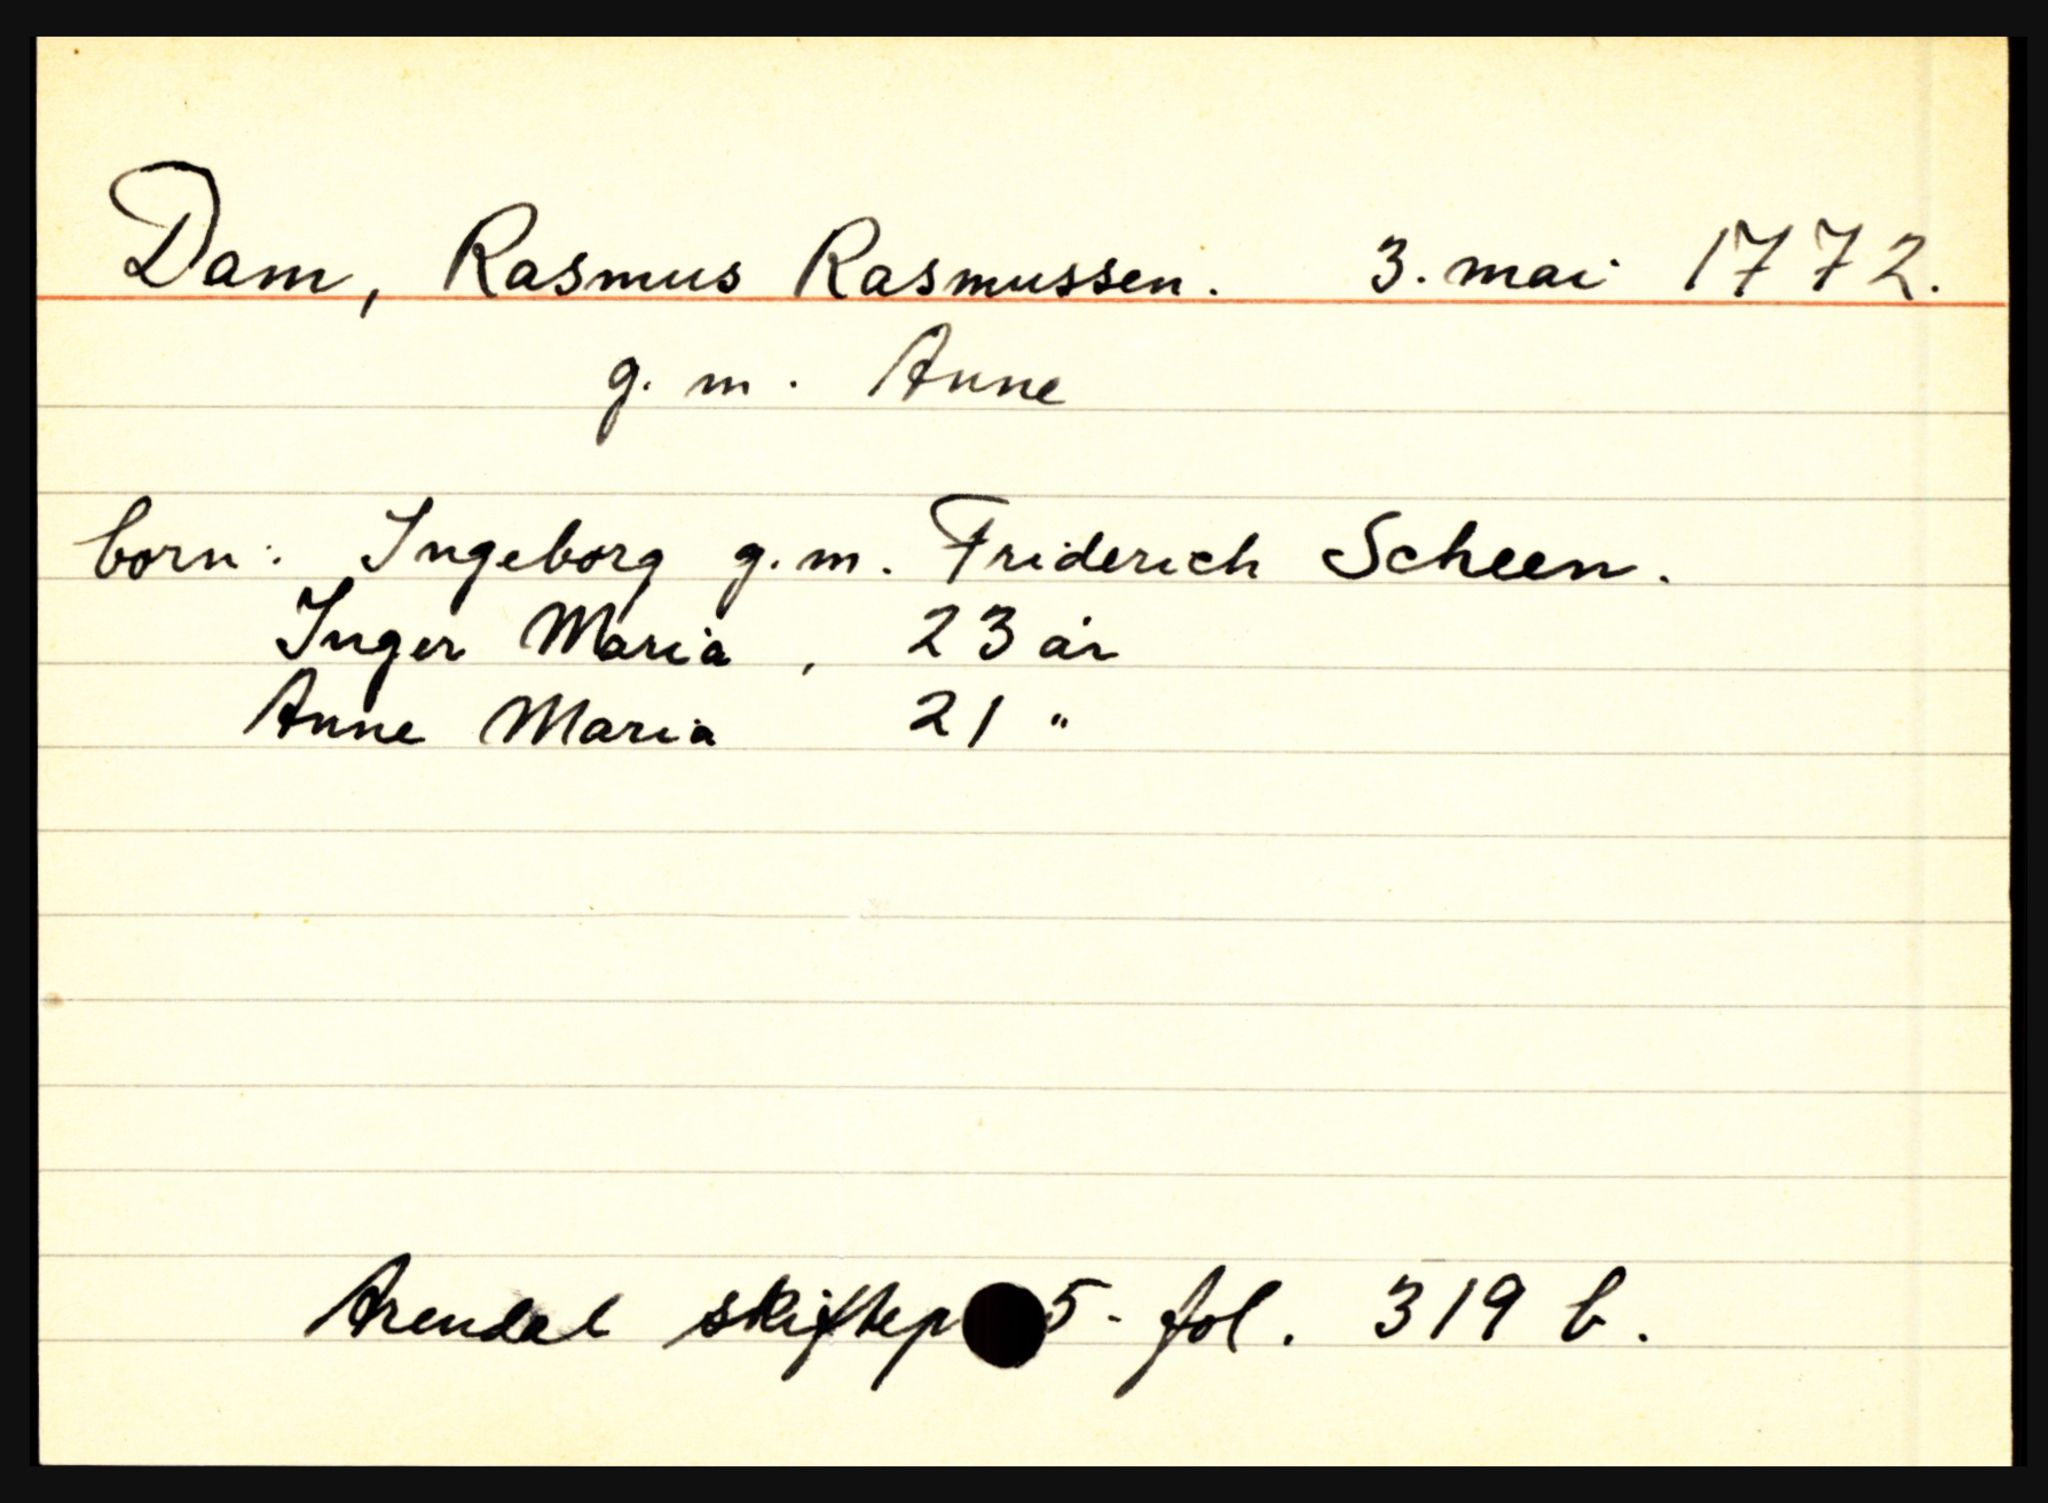 Dam, Rasmus Rasmussen. 3. mai 1772.
g. m. Anne
born: Ingeborg g.m. Friderich Scheen.
Inger Maria, 23 år
Anne Maria 21 "
Arendal skiftep 5 - fol. 319 b.